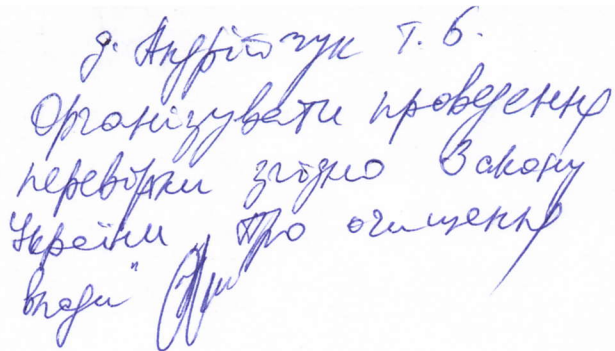 д. Андрійчук Т. Б.
Організувати проведення
перевірки згідно Закону
України „Про очищення
влади"